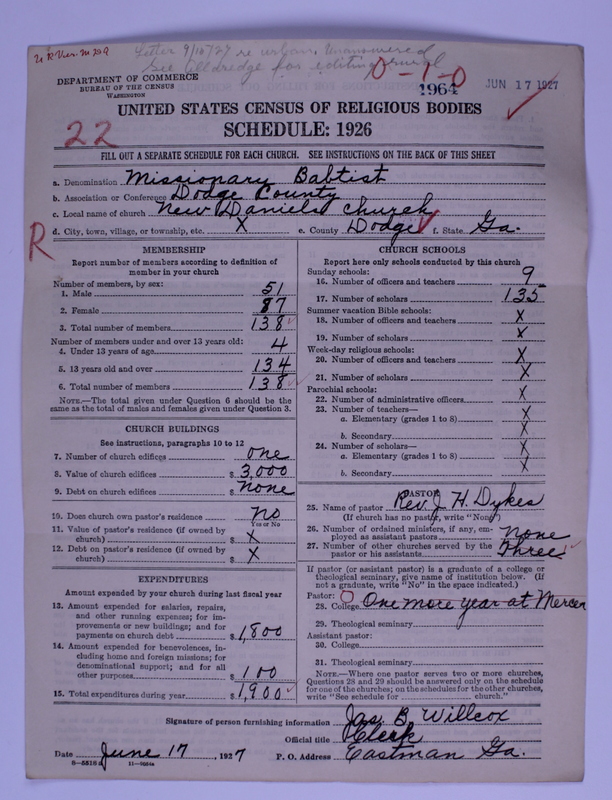 Letter 9/15/27 re
See Elldredge for editing
0-1-0
1964
JUN 17 1927
DEPARTMENT OF COMMERCE
BUREAU OF THE CENSUS
WASHINGTON
UNITED STATES CENSUS OF RELIGIOUS BODIES
22
SCHEDULE: 1926
FILL OUT A SEPARATE SCHEDULE FOR EACH CHURCH. SEE INSTRUCTIONS ON THE BACK OF THIS SHEET
a. Denomination Missionary Babtist
b. Association or Conference Dodge County
c. Local name of church New Daniels Church
d. City, town, village, or township, etc. X e. County Dodge f. State Ga.
R
MEMBERSHIP
Report number of members according to definition of
member in your church
Number of members, by sex:
1. Male 51
2. Female 87
3. Total number of members 138
Number of members under and over 13 years old:
4. Under 13 years of age 4
5. 13 years old and over 134
6. Total number of members 138
NOTE.—The total given under Question 6 should be the
same as the total of males and females given under Question 3.
CHURCH BUILDINGS
See instructions, paragraphs 10 to 12
7. Number of church edifices one
8. Value of church edifices $ 3,000
9. Debt on church edifices $ none
10. Does church own pastor's residence no
Yes or No
11. Value of pastor's residence (if owned by
church) $ X
12. Debt on pastor's residence (if owned by
church) $ X
EXPENDITURES
Amount expended by church during last fiscal year
13. Amount expended for salaries, repairs,
and other running expenses; for im-
provements or new buildings; and for
payments on church debt $ 1,800
14. Amount expended for benevolences, in-
cluding home and foreign missions; for
denominational support; and for all
other purposes $ 100
15. Total expenditures during year $ 1,900
CHURCH SCHOOLS
Report here only schools conducted by this church
Sunday schools:
16. Number of officers and teachers 9
17. Number of scholars 135
Summer vacation Bible schools:
18. Number of officers and teachers X
19. Number of scholars X
Week-day religious schools:
20. Number of officers and teachers X
21. Number of scholars X
Parochial schools:
22. Number of administrative officers X
23. Number of teachers—
a. Elementary (grades 1 to 8) X
b. Secondary X
24. Number of scholars—
a. Elementary (grades 1 to 8) X
b. Secondary X
PASTOR
25. Name of pastor Rev. J. H. Dykes
(If church has no pastor, write "None")
26. Number of ordained ministers, if any, em-
ployed as assistant pastors none
27. Number of other churches served by the
pastor or his assistants Three
If pastor (or assistant pastor) is a graduate of a college or
theological seminary, give name of institution below. (If
not a graduate, write "No" in the space indicated.)
Pastor:
28. College One more year at Mercer
29. Theological seminary
Assistant pastor:
30. College
31. Theological seminary
NOTE.—Where one pastor serves two or more churches,
Questions 28 and 29 should be answered only on the schedule
for one of the churches; on the schedules for the other churches,
write "See schedule for church."
Signature of person furnishing information Jas. B. Willcox
Official title Clerk
Date June 17, 1927 P. O. Address Eastman Ga.
8-5516a 11-9064a